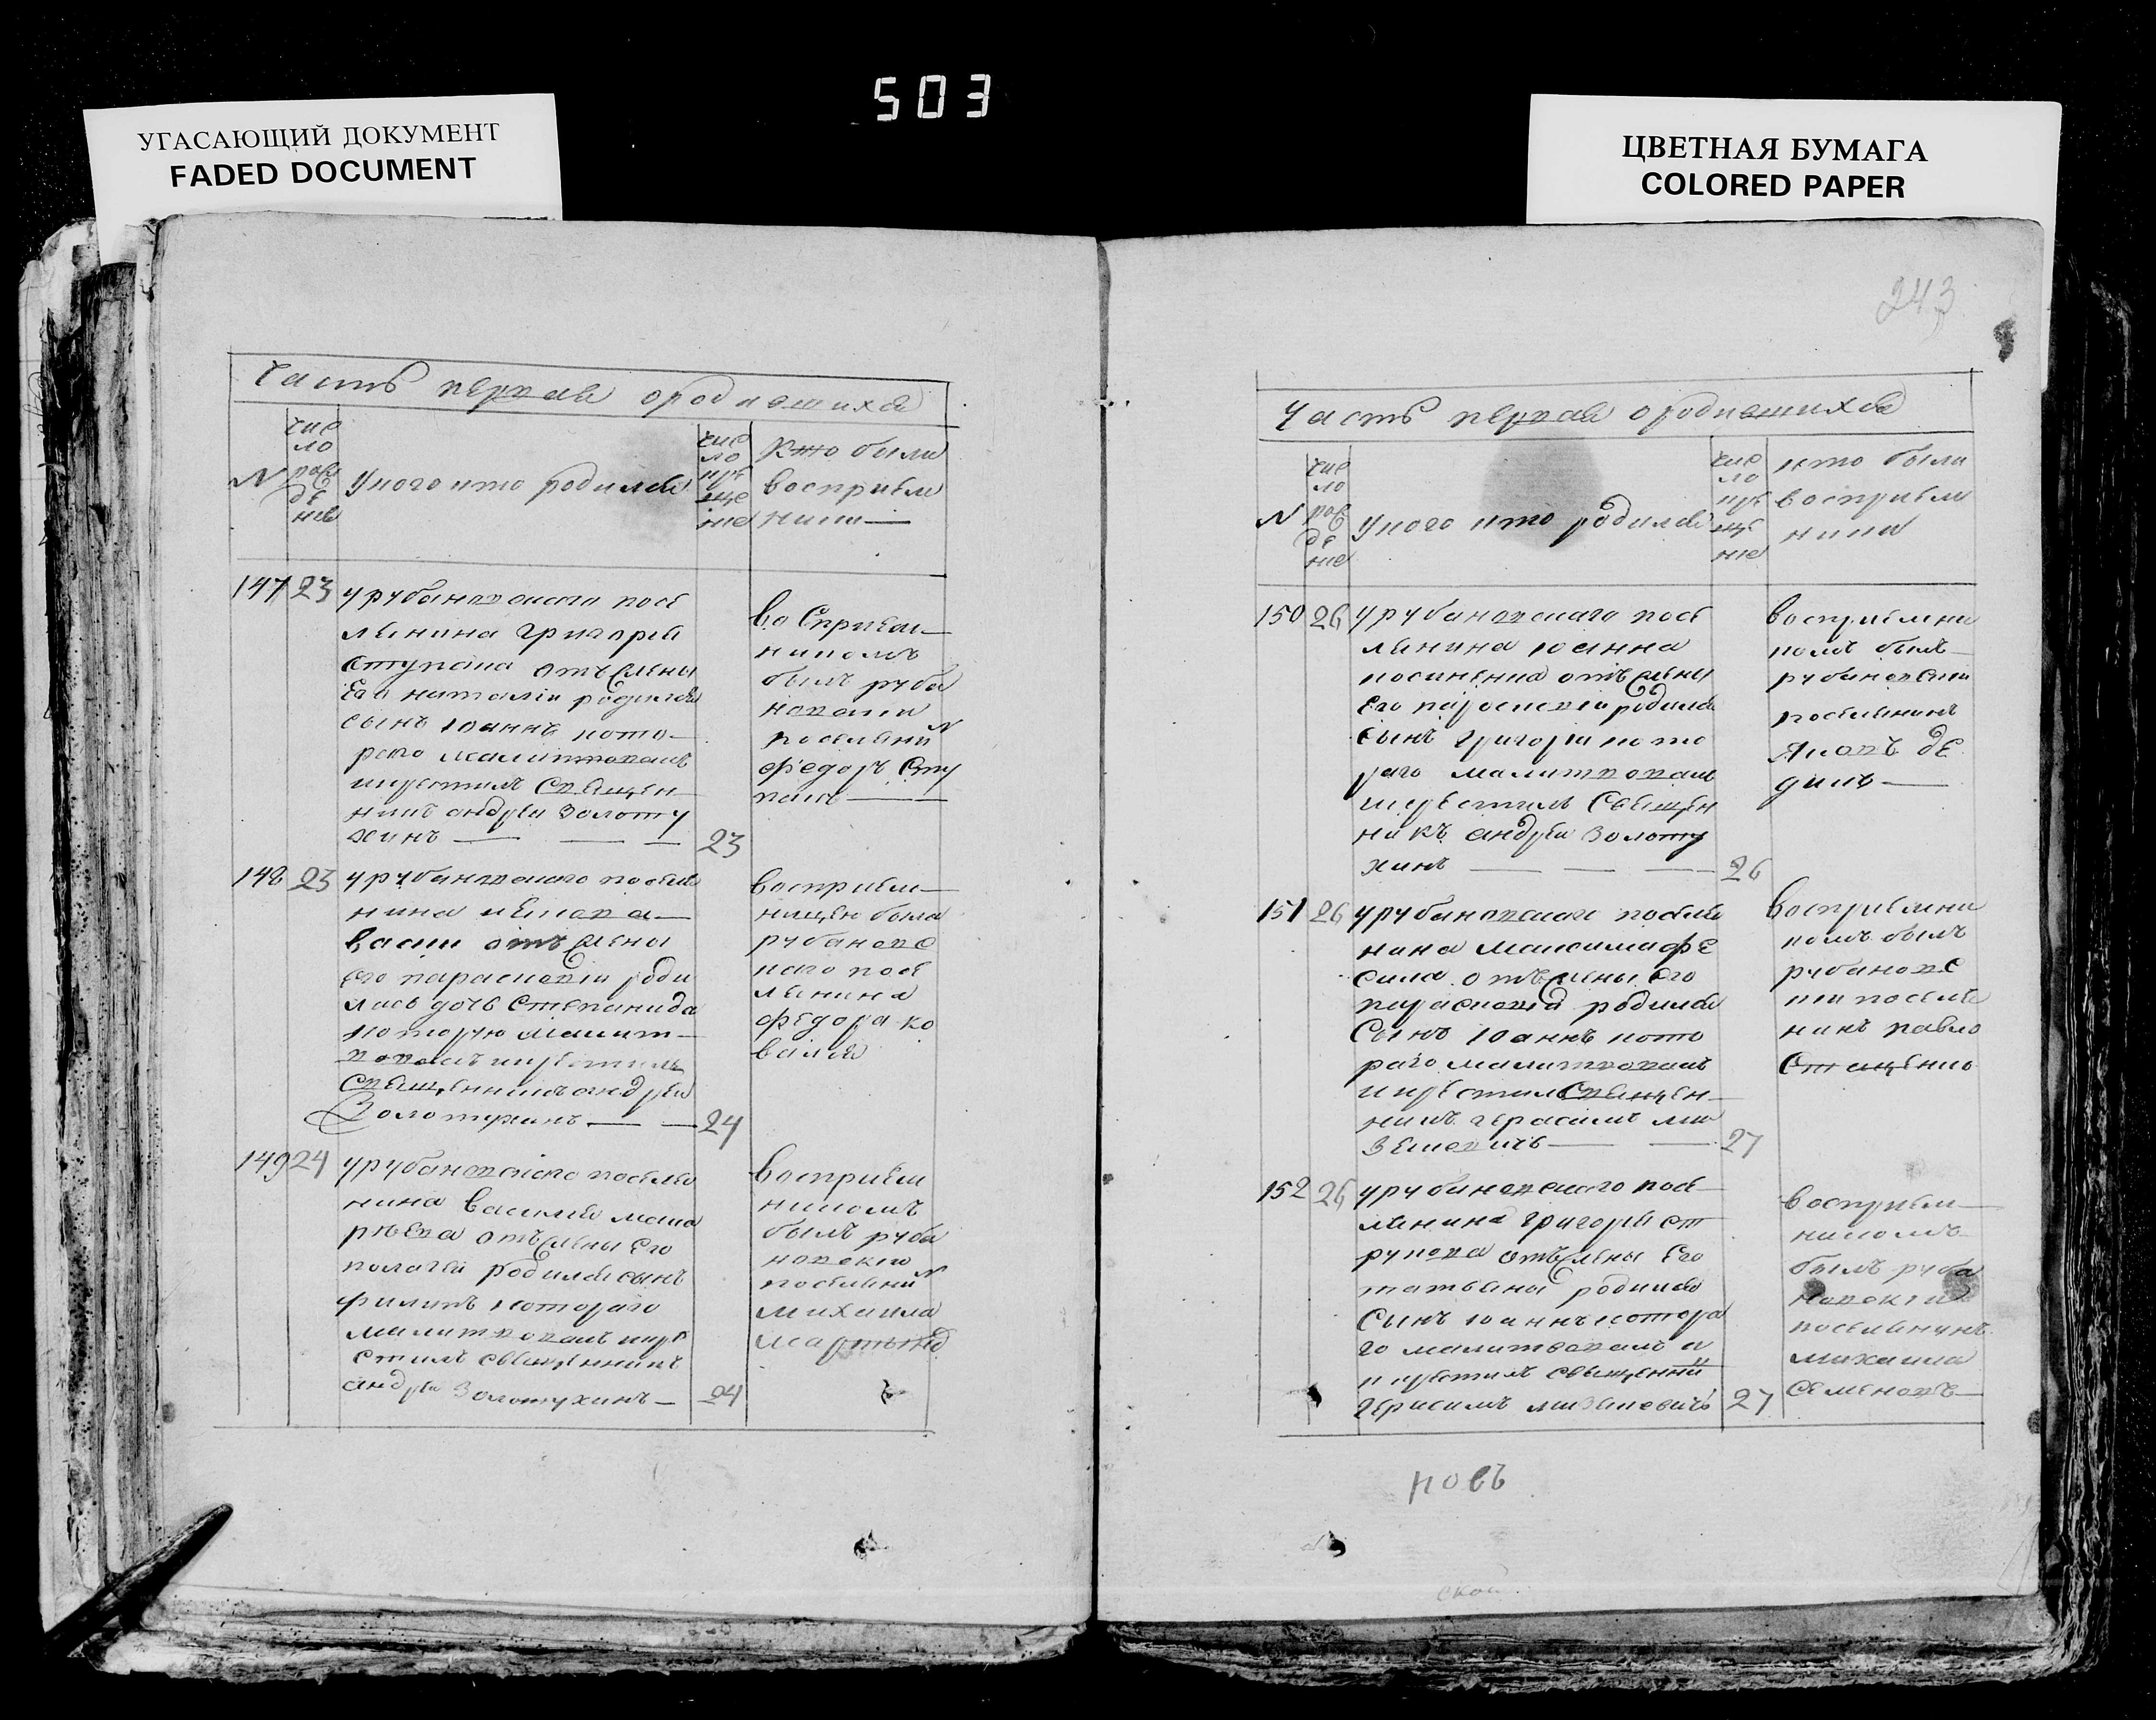 503
УГАСАЮЩИЙ ДОКУМЕНТ
FADED DOCUMENT
ЦВЕТНАЯ БУМАГА
COLORED PAPER
243
часть первая ородившихся
N
чис
ло
рож
де
нія
Укого кто родился
чис
ло
кре
ще
ние
Кто были
восприем
ники
147 23
урубановскаго посе
лянина григорія
Ступака отъ жены
Его наталіи родился
сынъ иоаннъ кото
раго малитвовалъ
икрестилъ Священ
никъ андрей Золоту
хинъ
23
во Сприем
никомъ
былъ руба
новскій
поселянинъ
федоръ Сту
пакъ
148 23
урубановскаго поселя
нина
отъ жены
его парасковіи роди
лась дочь Степанида
которую малит
вовалъ икрестилъ
Священникъ андрей
Золотухинъ
24
восприем
ницею была
рубановс
каго посе
лянина
федора ко
валя
149 24
урубановскаго поселя
нина василия мака
рьева отъ жены Его
пелагеи родился сынъ
филипъ котораго
малитвовалъ икре
стилъ священникъ
андрей Золотухинъ
24
восприем
никомъ
былъ руба
новский
поселянинъ
михаила
часть первая ородившихся
N
чис
ло
рож
де
ние
Укого кто родился
чис
ло
кре
ще
ние
кто были
восприем
ники
150 26
урубановскаго посе
лянина иоанна
отъ жены
Его парасковіи родился
сынъ григорій кото
раго малитвовалъ
икрестилъ Священ
никъ андрей Золоту
хинъ
26
восприемни
комъ былъ
рубановский
поселянинъ
Яковъ де
151 26
урубановскаго поселя
нина Максима фе
отъ жены Его
парасковіи родился
Сынъ иоаннъ кото
раго малитвовалъ
икрестилъ Священ
никъ герасимъ ми
27
восприемни
комъ былъ
рубановс
кий поселя
нинъ павло
152 26
урубановскаго посе
лянина григорія ст
рукова отъ жены Его
татьяны родился
Сынъ иоаннъ котора
го малитвовалъ и
икрестилъ священни
герасимъ
27
восприем
никомъ
былъ руба
новский
поселянинъ
михаила
Семеновъ